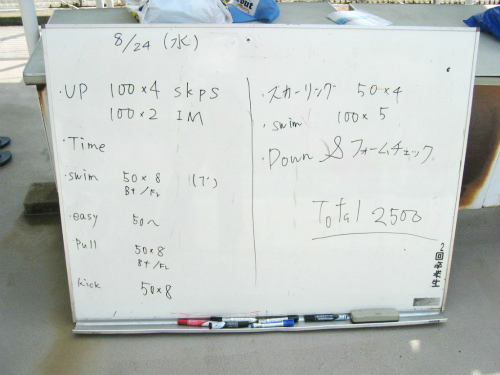 8/24 (水)
・UP 100×4 skps
100×2 IM
・Time
・swim 50×8
Bt/Fr
・easy 50~
Pull 50×8
Bt/Fr
kick 50×8
・スカーリング 50×4
・swim 100×5
・Down & フォームチェック
Total 2500